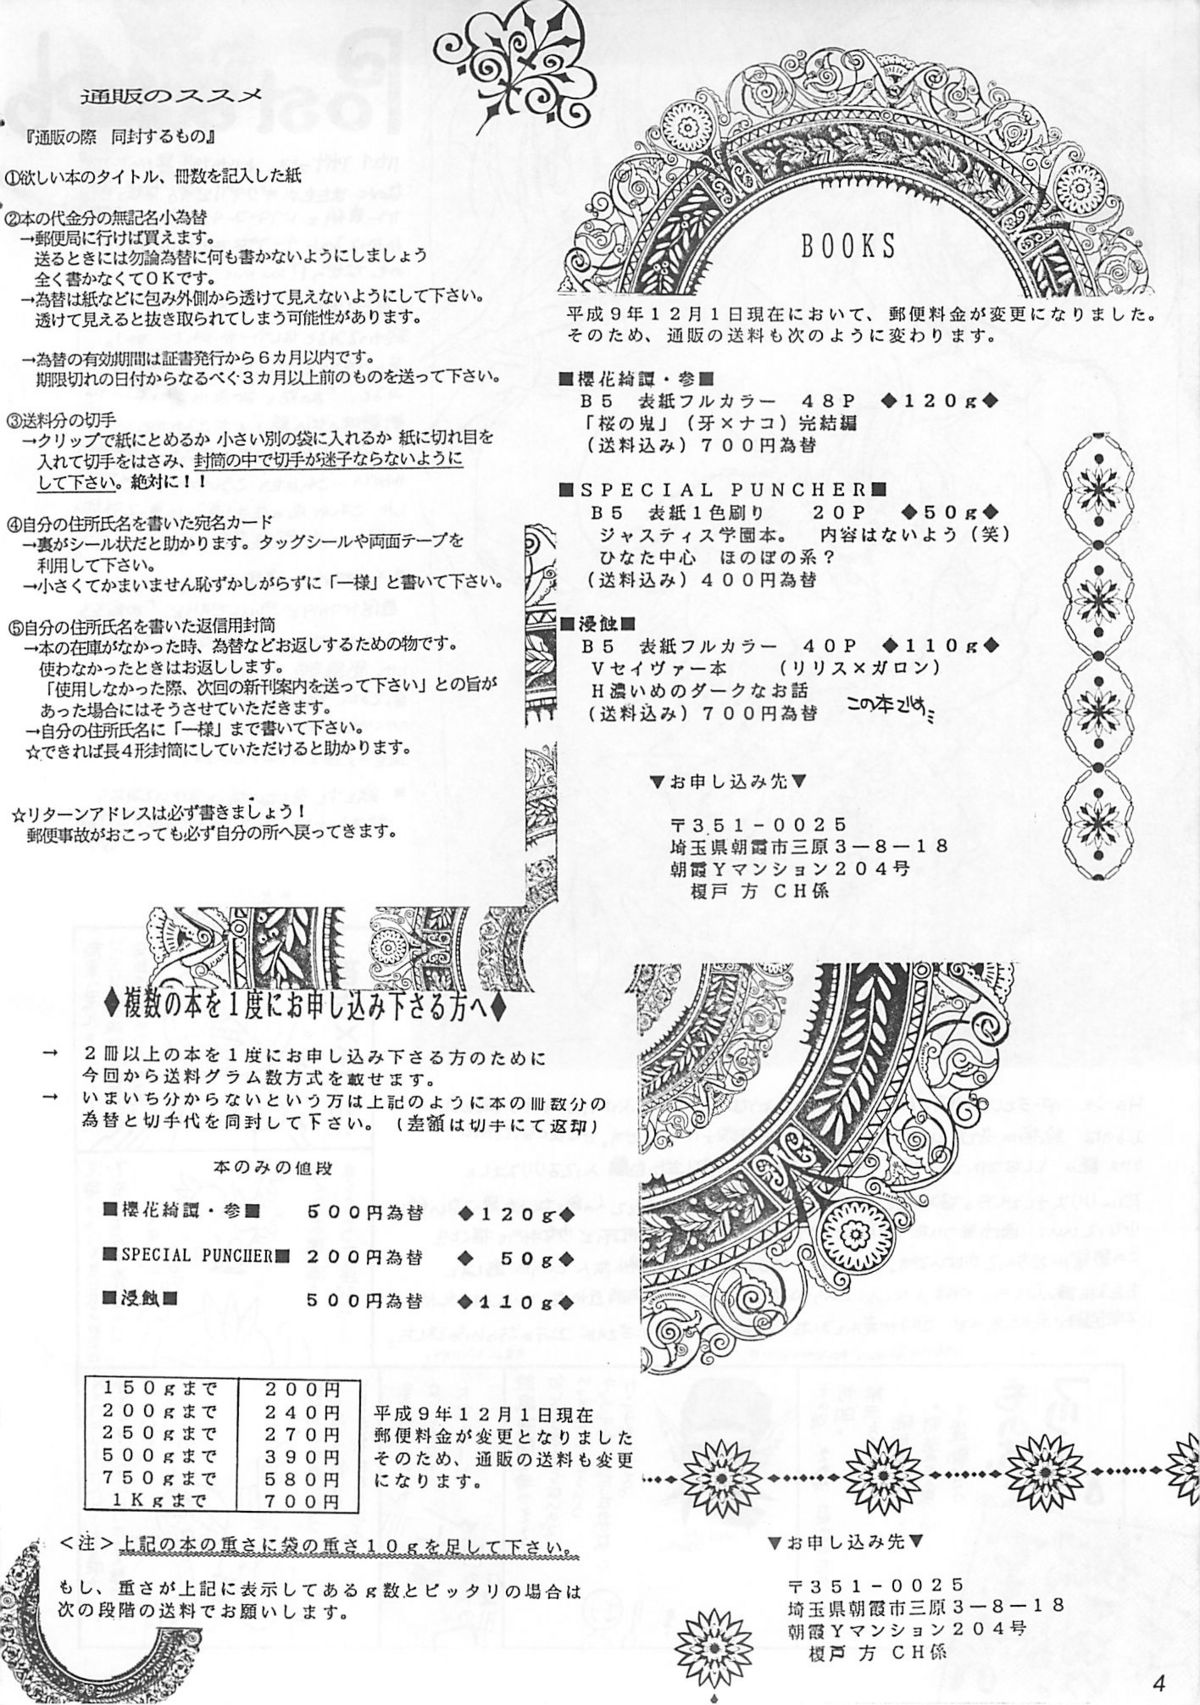 通販のススメ
『通販の際　同封するもの』
①欲しい本のタイトル、冊数を記入した紙
②本の代金分の無記名小為替
→郵便局に行けば買えます。
送るときには勿論為替に何も書かないようにしましょう
全く書かなくてＯＫです。
→為替は紙などに包み外側から透けて見えないようにして下さい。
透けて見えると抜き取られてしまう可能性があります。
→為替の有効期間は証書発行から６カ月以内です。
期限切れの日付からなるべく３カ月以上前のものを送って下さい。
③送料分の切手
→クリップで紙にとめるか 小さい別の袋に入れるか 紙に切れ目を
入れて切手をはさみ、封筒の中で切手が迷子ならないように
して下さい。絶対に！！
④自分の住所氏名を書いた宛名カード
→裏がシール状だと助かります。タッグシールや両面テープを
利用して下さい。
→小さくてかまいません恥ずかしがらずに「一様」と書いて下さい。
⑤自分の住所氏名を書いた返信用封筒
→本の在庫がなかった時、為替などお返しするための物です。
使わなかったときはお返しします。
「使用しなかった際、次回の新刊案内を送って下さい」との旨が
あった場合にはそうさせていただきます。
→自分の住所氏名に「一様」まで書いて下さい。
☆できれば長４形封筒にしていただけると助かります。
☆リターンアドレスは必ず書きましょう！
郵便事故がおこっても必ず自分の所へ戻ってきます。
BOOKS
平成９年１２月１日現在において、郵便料金が変更になりました。
そのため、通販の送料も次のように変わります。
■櫻花綺譚・参■
Ｂ５　表紙フルカラー　４８Ｐ　◆１２０ｇ◆
「桜の鬼」（牙×ナコ）完結編
（送料込み）７００円為替
■ＳＰＥＣＩＡＬ ＰＵＮＣＨＥＲ■
Ｂ５　表紙１色刷り　　２０Ｐ　◆５０ｇ◆
ジャスティス学園本。　内容はないよう（笑）
ひなた中心　ほのぼの系？
（送料込み）４００円為替
■浸蝕■
Ｂ５　表紙フルカラー　４０Ｐ　◆１１０ｇ◆
Ｖセイヴァー本　　（リリス×ガロン）
Ｈ濃いめのダークなお話
（送料込み）７００円為替　この本でしめ
▼お申し込み先▼
〒３５１－００２５
埼玉県朝霞市三原３－８－１８
朝霞Ｙマンション２０４号
榎戸 方 ＣＨ係
◆複数の本を１度にお申し込み下さる方へ◆
→　２冊以上の本を１度にお申し込み下さる方のために
今回から送料グラム数方式を載せます。
→　いまいち分からないという方は上記のように本の冊数分の
為替と切手代を同封して下さい。（差額は切手にて返却）
本のみの値段
■櫻花綺譚・参■　５００円為替　◆１２０ｇ◆
■SPECIAL PUNCHER■　２００円為替　◆　５０ｇ◆
■浸蝕■　５００円為替　◆１１０ｇ◆
１５０ｇまで　２００円
２００ｇまで　２４０円
２５０ｇまで　２７０円
５００ｇまで　３９０円
７５０ｇまで　５８０円
１Ｋｇまで　７００円
平成９年１２月１日現在
郵便料金が変更となりました
そのため、通販の送料も変更
になります。
＜注＞上記の本の重さに袋の重さ１０ｇを足して下さい。
もし、重さが上記に表示してあるｇ数とピッタリの場合は
次の段階の送料でお願いします。
▼お申し込み先▼
〒３５１－００２５
埼玉県朝霞市三原３－８－１８
朝霞Ｙマンション２０４号
榎戸 方 ＣＨ係
4